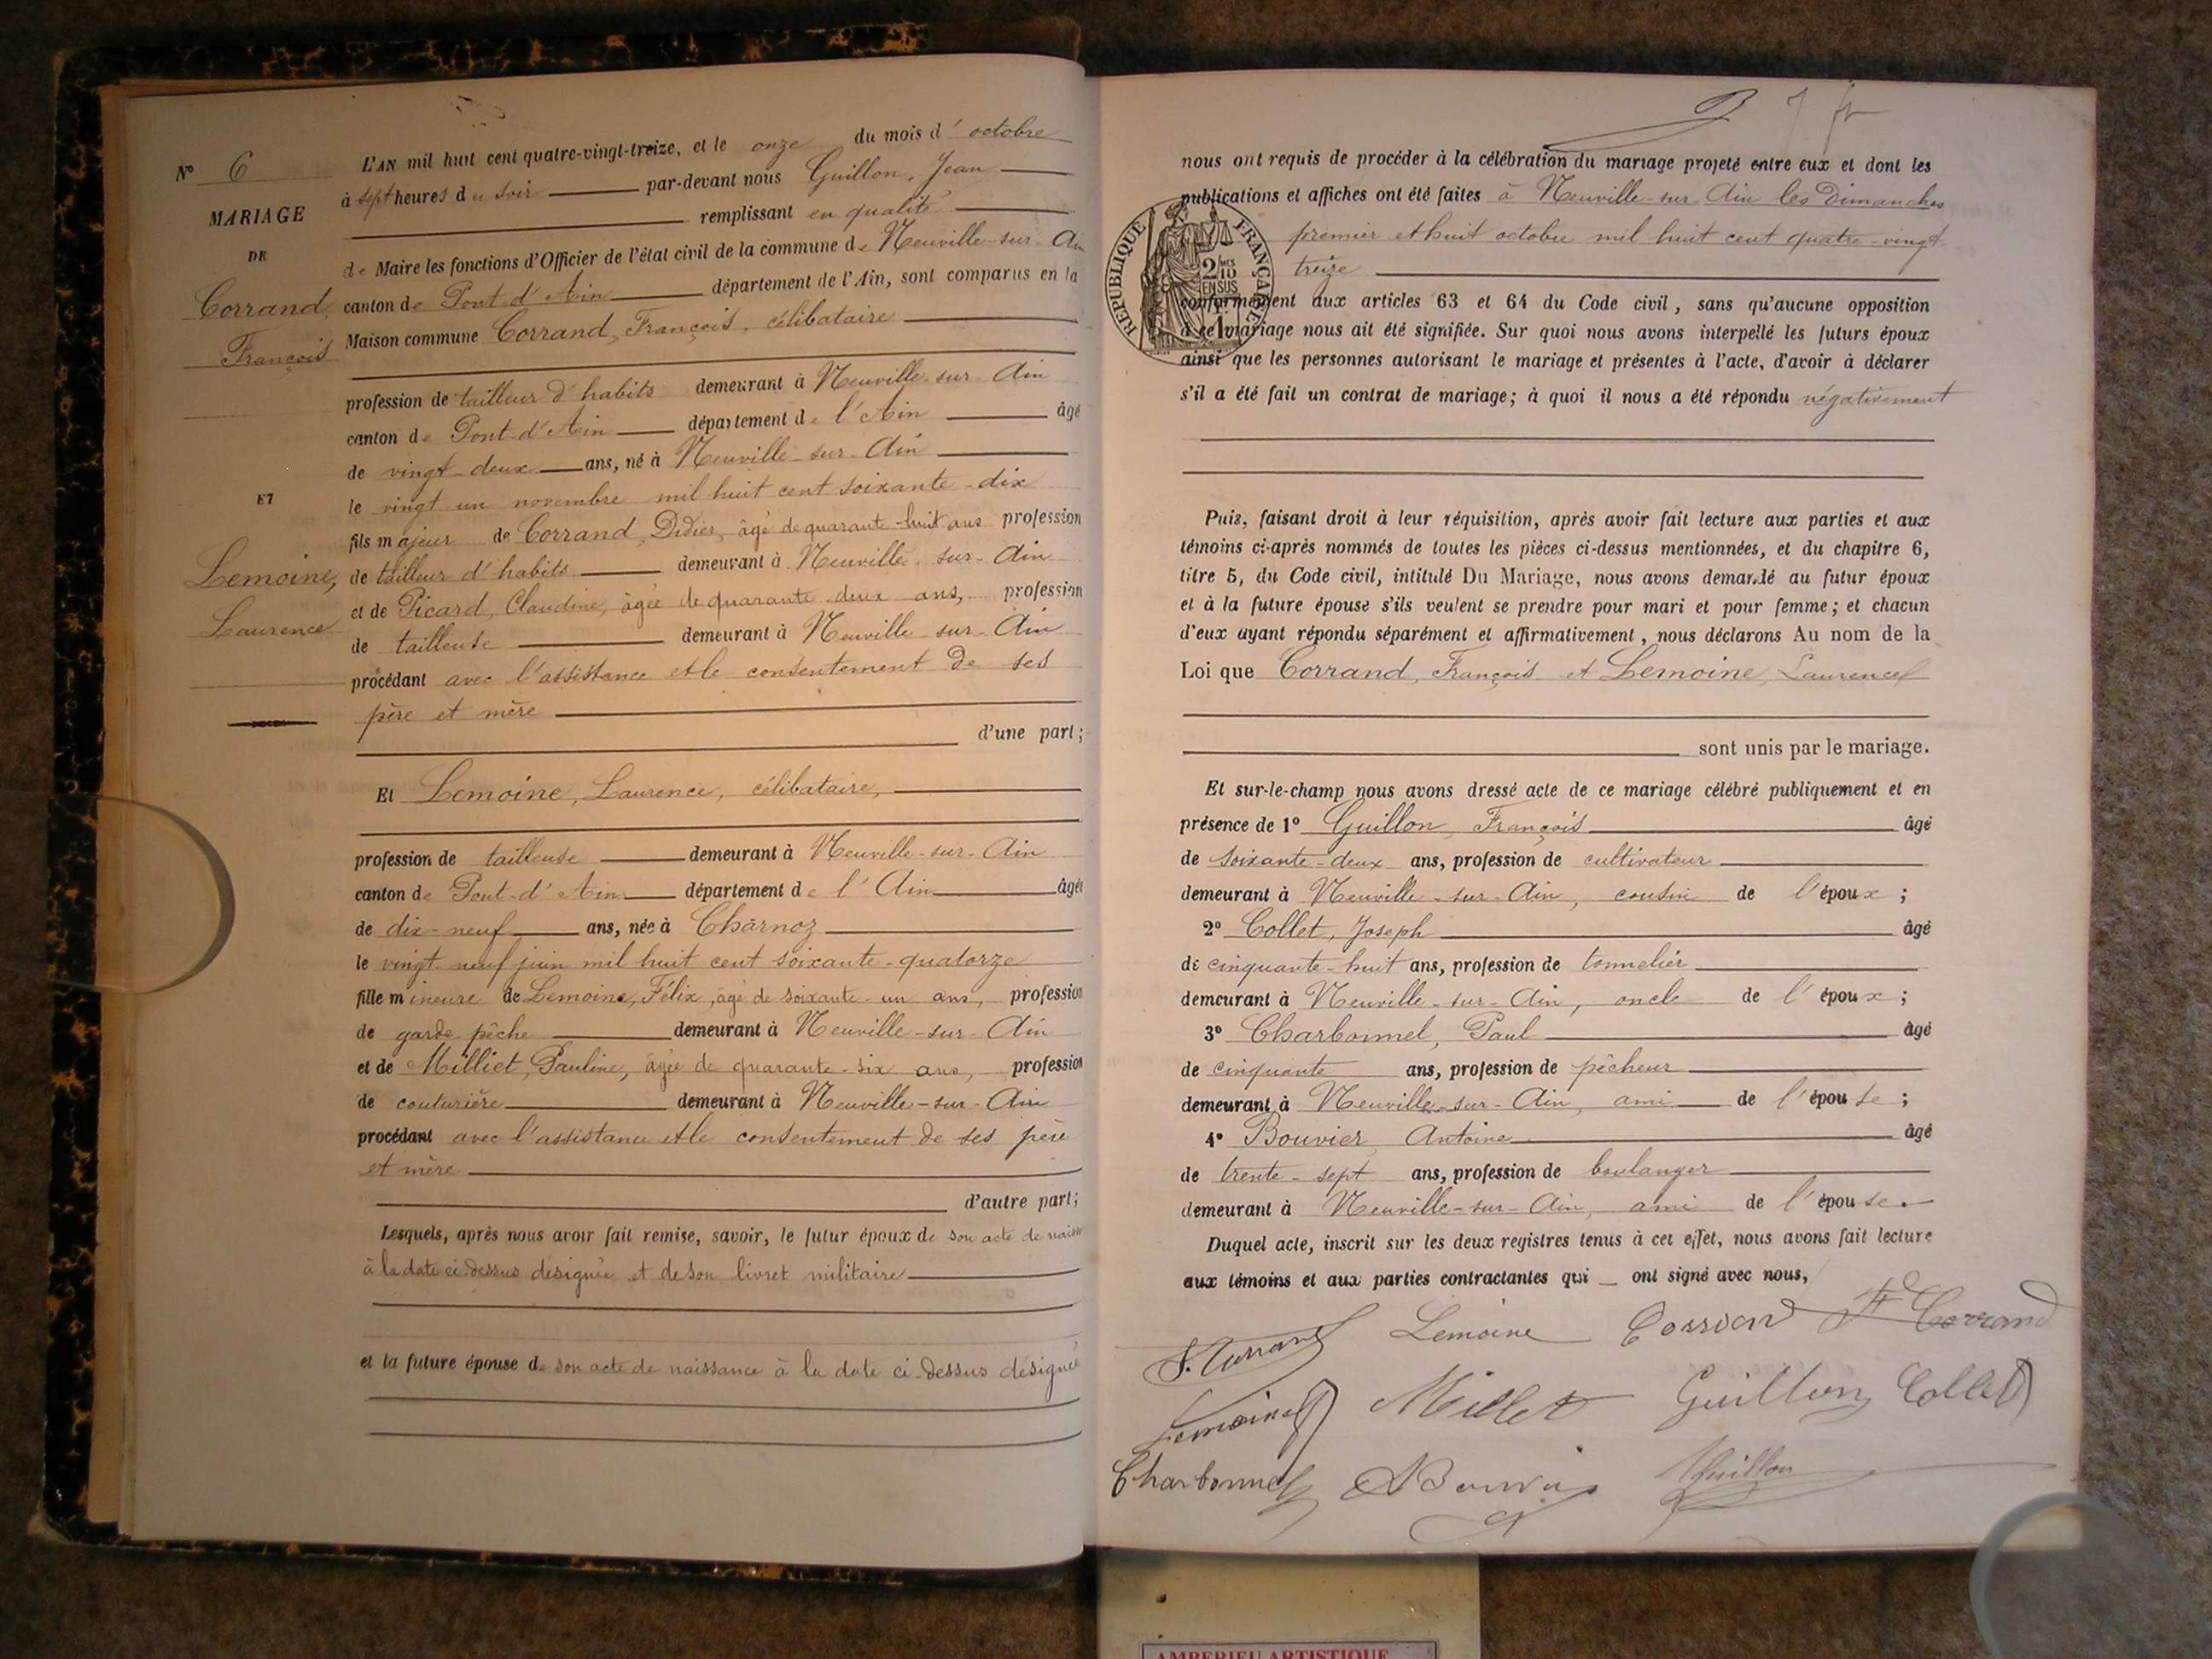 N° 6
MARIAGE
DE
Corrand,
François
ET
Lemoine,
Laurence
L'AN mil huit cent quatre-vingt-treize, et le onze du mois d'octobre
à sept heures du soir par-devant nous Guillon, Jean
remplissant en qualité
de Maire les fonctions d'Officier de l'état civil de la commune de Neuville-sur-Ain
canton de Pont-d'Ain département de l'Ain, sont comparus en la
Maison commune Corrand, François, célibataire
profession de tailleur d'habits demeurant à Neuville-sur-Ain
canton de Pont-d'Ain département de l'Ain âgé
de vingt-deux ans, né à Neuville-sur-Ain
le vingt un novembre mil huit cent soixante-dix
fils majeur de Corrand, Didier, âgé de quarante-huit ans profession
de tailleur d'habits demeurant à Neuville-sur-Ain
et de Picard, Claudine, âgée de quarante-deux ans, profession
de tailleuse demeurant à Neuville-sur-Ain
procédant avec l'assistance et le consentement de ses
père et mère
d'une part;
Et Lemoine, Laurence, célibataire,
profession de tailleuse demeurant à Neuville-sur-Ain
canton de Pont-d'Ain département de l'Ain âgée
de dix-neuf ans, née à Charnoz
le vingt-neuf juin mil huit cent soixante-quatorze
fille mineure de Lemoine, Félix, âgé de soixante-un ans, profession
de garde pêche demeurant à Neuville-sur-Ain
et de Milliet, Pauline, âgée de quarante-six ans, profession
de couturière demeurant à Neuville-sur-Ain
procédant avec l'assistance et le consentement de ses père
et mère
d'autre part;
Lesquels, après nous avoir fait remise, savoir, le futur époux de son acte de naiss
à la date ci-dessus désignée et de son livret militaire
et la future épouse de son acte de naissance à la date ci-dessus désignée
7
nous ont requis de procéder à la célébration du mariage projeté entre eux et dont les
publications et affiches ont été faites à Neuville-sur-Ain les Dimanches
premier et huit octobre mil huit cent quatre-vingt
treize
RÉPUBLIQUE FRANÇAISE
2/10
EN SUS
conformément aux articles 63 et 64 du Code civil, sans qu'aucune opposition
à ce mariage nous ait été signifiée. Sur quoi nous avons interpellé les futurs époux
ainsi que les personnes autorisant le mariage et présentes à l'acte, d'avoir à déclarer
s'il a été fait un contrat de mariage; à quoi il nous a été répondu négativement
Puis, faisant droit à leur réquisition, après avoir fait lecture aux parties et aux
témoins ci-après nommés de toutes les pièces ci-dessus mentionnées, et du chapitre 6,
titre 5, du Code civil, intitulé Du Mariage, nous avons demandé au futur époux
et à la future épouse s'ils veulent se prendre pour mari et pour femme; et chacun
d'eux ayant répondu séparément et affirmativement, nous déclarons Au nom de la
Loi que Corrand, François et Lemoine, Laurence
sont unis par le mariage.
Et sur-le-champ nous avons dressé acte de ce mariage célébré publiquement et en
présence de 1° Guillon, François âgé
de soixante-deux ans, profession de cultivateur
demeurant à Neuville-sur-Ain, cousin de l'époux;
2° Collet, Joseph âgé
de cinquante-huit ans, profession de tonnelier
demeurant à Neuville-sur-Ain, oncle de l'époux;
3° Charbonnel, Paul âgé
de cinquante ans, profession de pêcheur
demeurant à Neuville-sur-Ain, ami de l'épouse;
4° Bouvier Antoine âgé
de trente-sept ans, profession de boulanger
demeurant à Neuville-sur-Ain, ami de l'épouse.
Duquel acte, inscrit sur les deux registres tenus à cet effet, nous avons fait lecture
aux témoins et aux parties contractantes qui ont signé avec nous,
F. Corrand Lemoine Corrand Corrand
Lemoine Millet Guillon Collet
Charbonnel Bouvier Guillon
AMBERIEU ARTISTIQUE